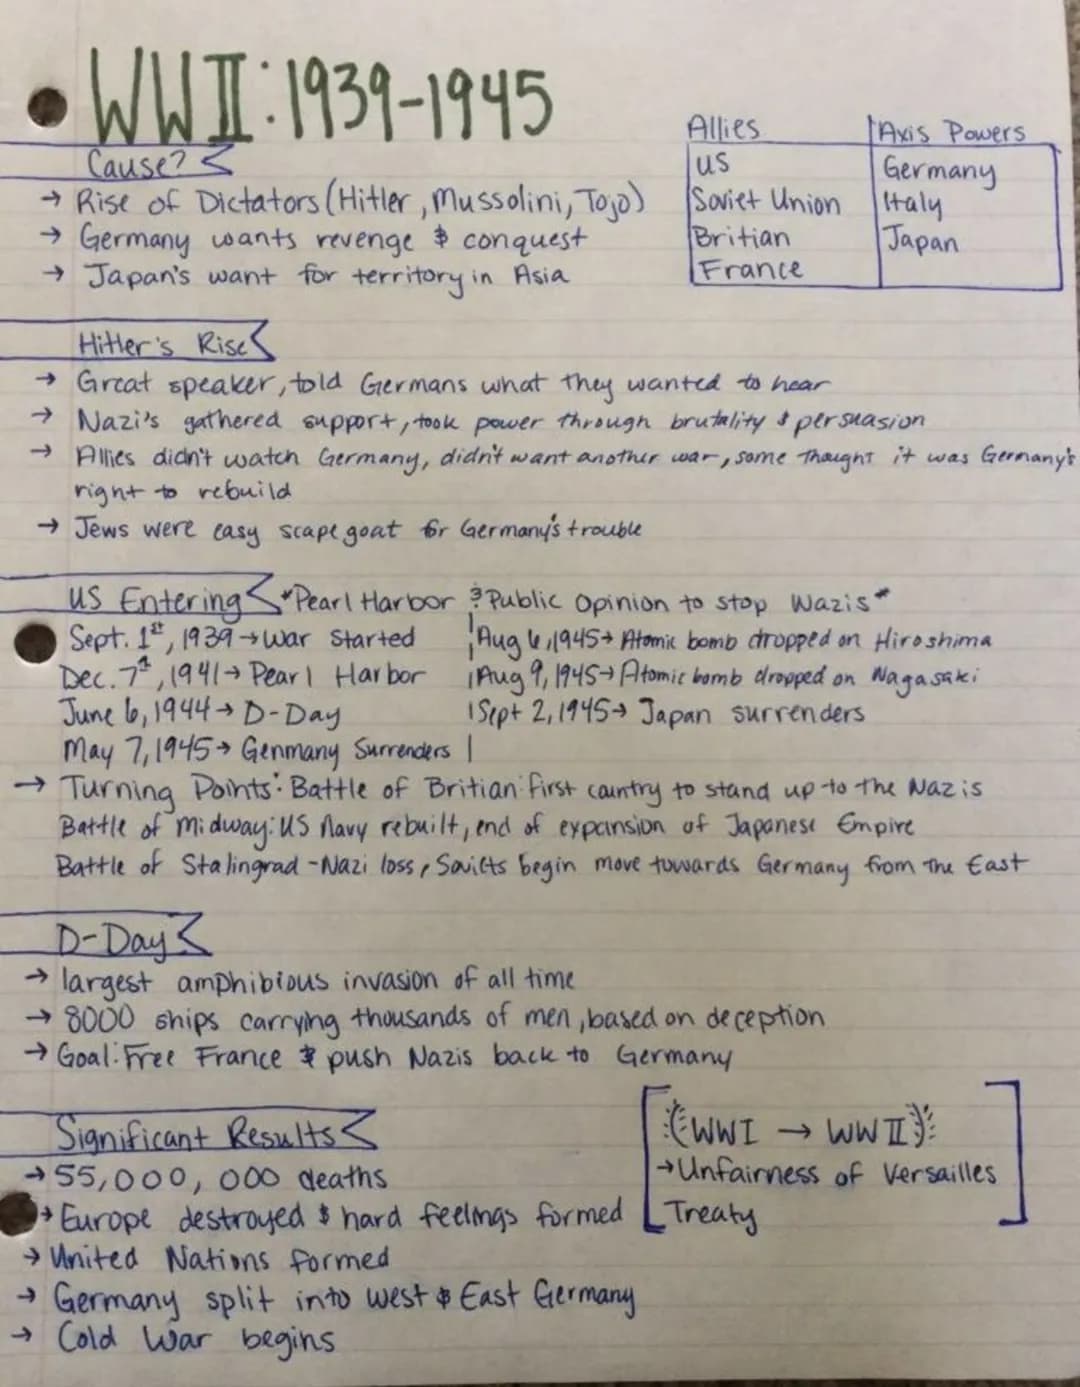 WWII: 1939-1945
Allies | Axis Powers
US | Germany
Soviet Union | Italy
Britian | Japan
France
Cause?
→ Rise of Dictators (Hitler, Mussolini, Tojo)
→ Germany wants revenge & conquest
→ Japan's want for territory in Asia
Hitler's Rise
→ Great speaker, told Germans what they wanted to hear
→ Nazi's gathered support, took power through brutality & persuasion
→ Allies didn't watch Germany, didn't want another war, some thought it was Germany's
right to rebuild
→ Jews were easy scapegoat for Germany's trouble
US Entering *Pearl Harbor & Public Opinion to stop Nazis*
Sept. 1st, 1939 → War Started
Dec. 7th, 1941 → Pearl Harbor
June 6, 1944 → D-Day
May 7, 1945 → Genmany Surrenders
Aug 6, 1945 → Atomic bomb dropped on Hiroshima
Aug 9, 1945 → Atomic bomb dropped on Nagasaki
Sept 2, 1945 → Japan surrenders
→ Turning Points: Battle of Britian: first country to stand up to the Nazis
Battle of Midway: US Navy rebuilt, end of expansion of Japanese Empire
Battle of Stalingrad - Nazi loss, Soviets begin move towards Germany from the East
D-Day
→ largest amphibious invasion of all time
→ 8000 ships carrying thousands of men, based on deception
→ Goal: Free France & push Nazis back to Germany
Significant Results
→ 55,000,000 deaths
→ Europe destroyed & hard feelings formed
→ United Nations formed
→ Germany split into west & East Germany
→ Cold War begins
WWI → WWII
→ Unfairness of Versailles
Treaty